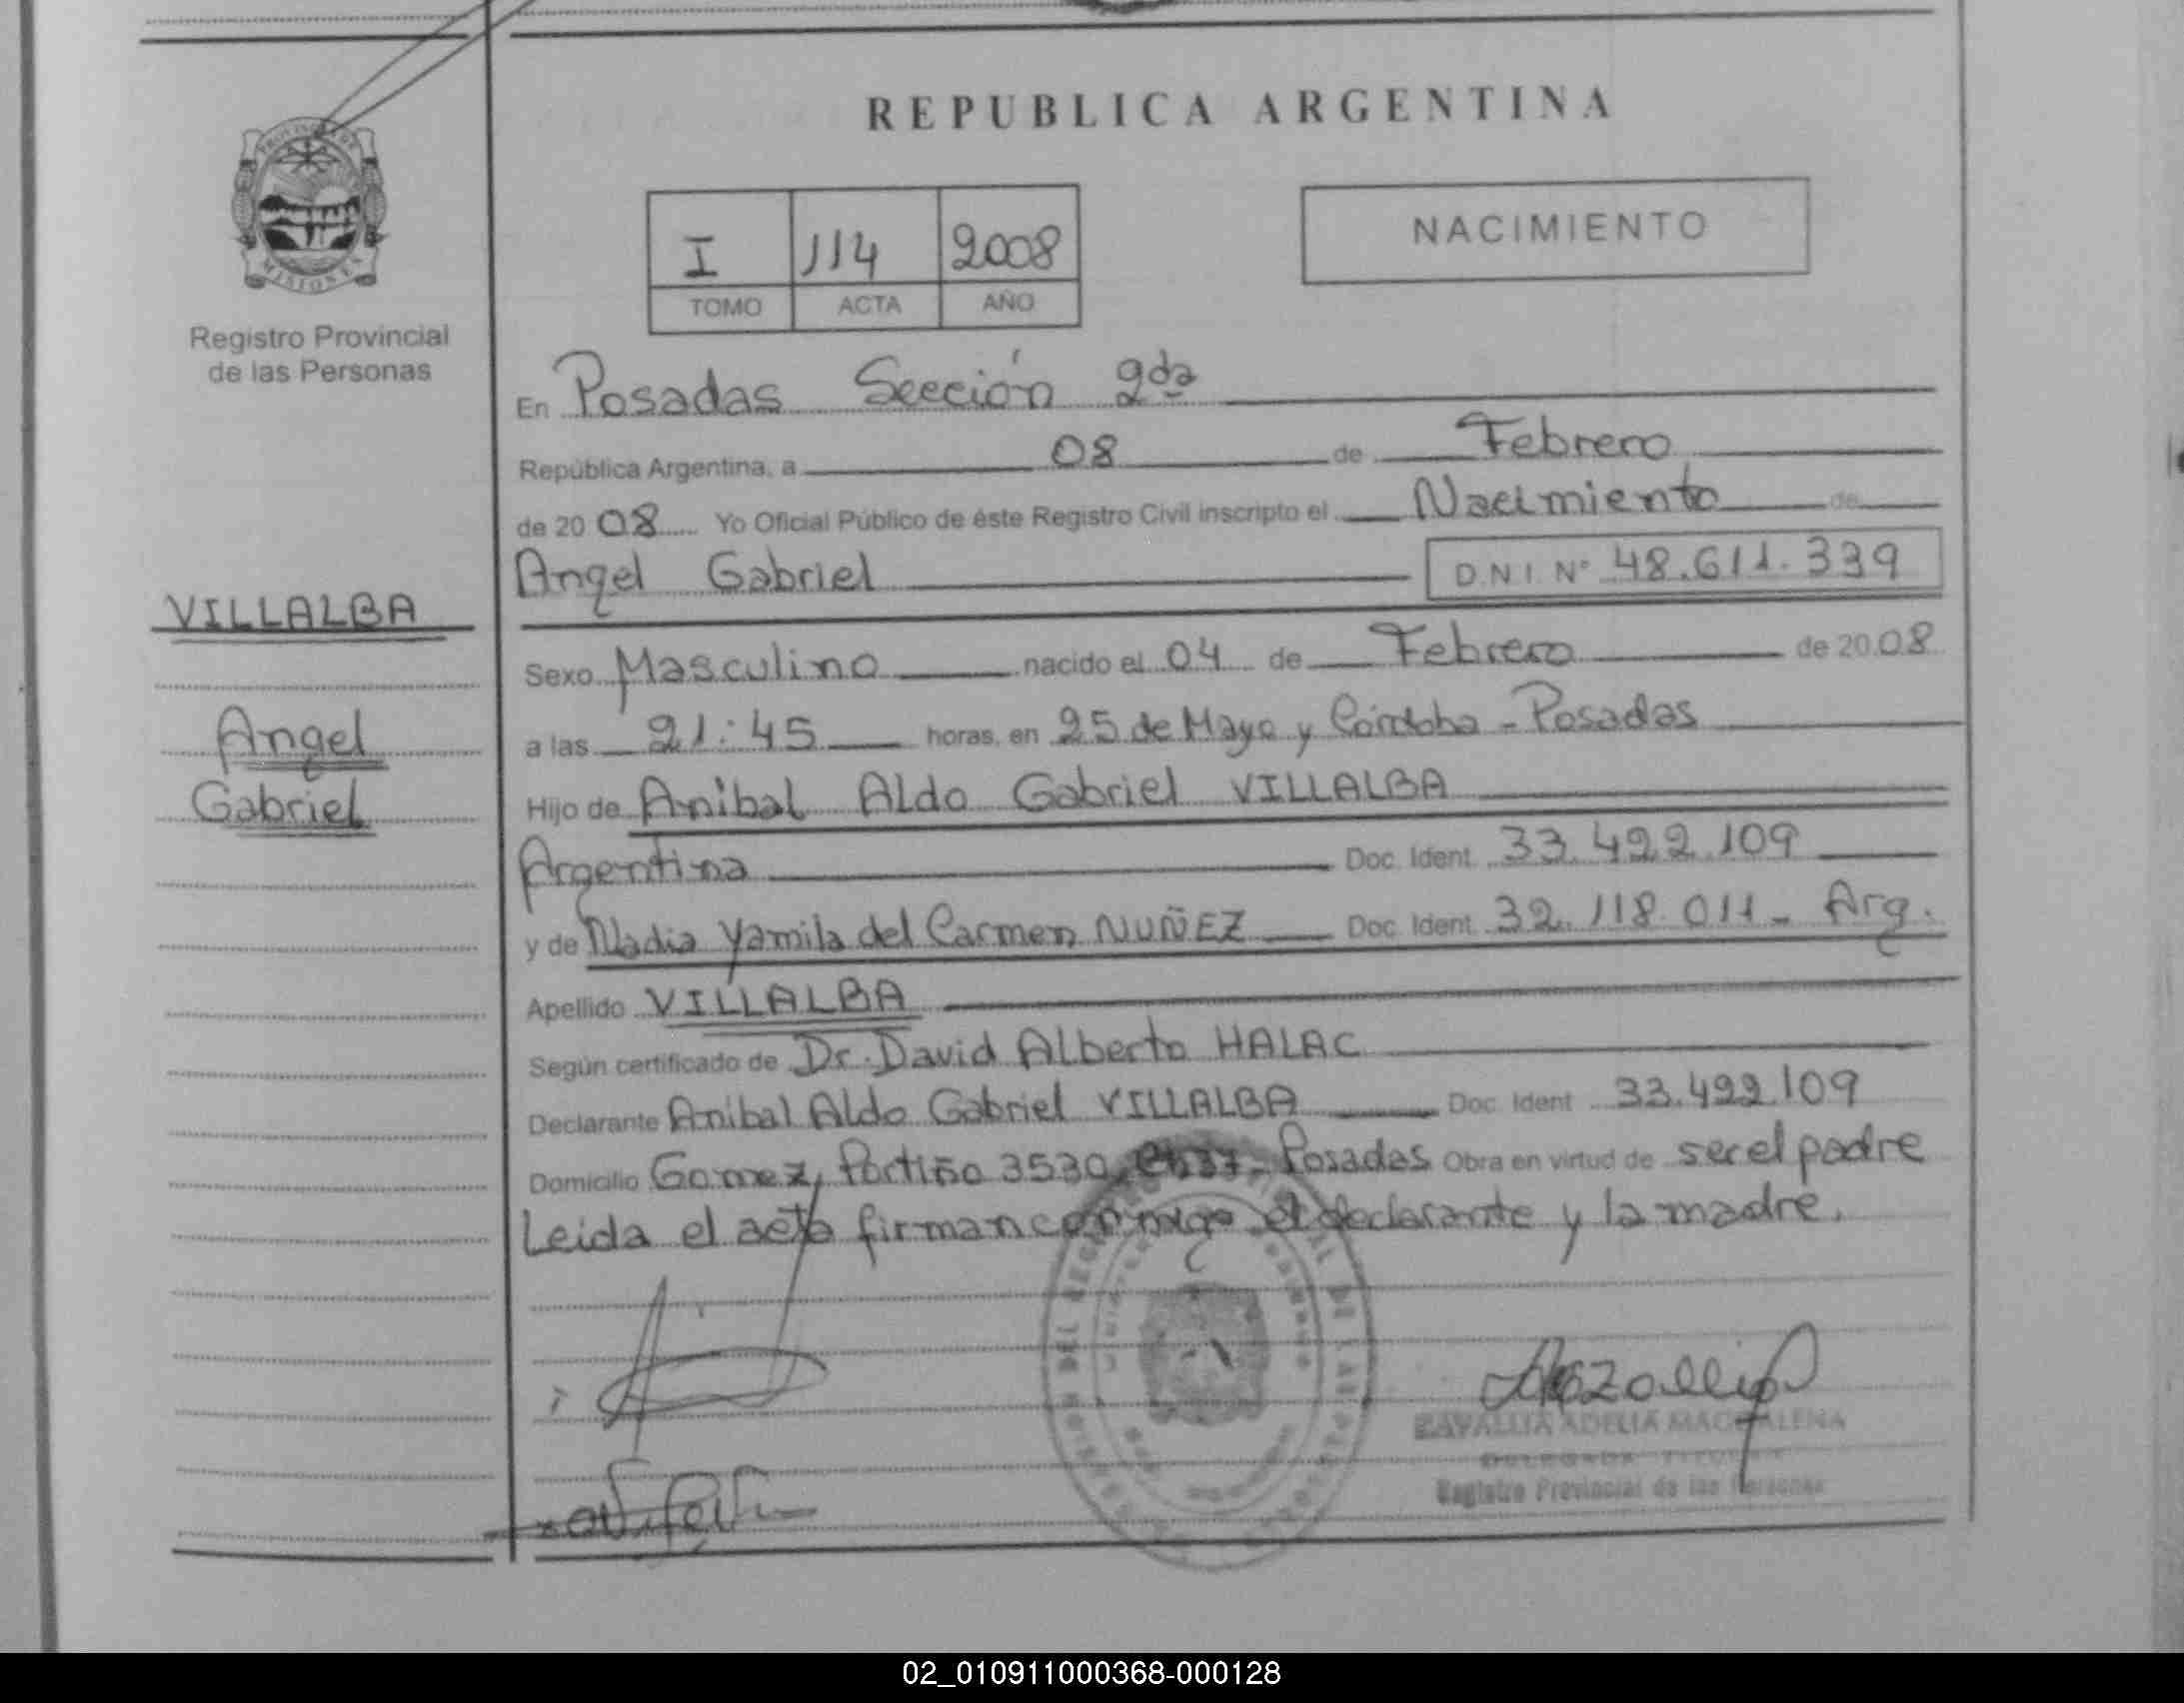 REPUBLICA ARGENTINA
PROVINCIA DE
MISIONES
Registro Provincial
de las Personas
I 114 2008
TOMO ACTA AÑO
NACIMIENTO
En Posadas Sección 2da
República Argentina, a 08 de Febrero
de 2008 Yo Oficial Público de éste Registro Civil inscripto el Nacimiento de
Angel Gabriel D.N.I. Nº 48.611.339
VILLALBA
Angel
Gabriel
Sexo Masculino nacido el 04 de Febrero de 2008
a las 21:45 horas, en 25 de Mayo y Córdoba - Posadas
Hijo de Anibal Aldo Gabriel VILLALBA
Argentina Doc. Ident. 33.422.109
y de Nadia Yamila del Carmen NUÑEZ Doc. Ident. 32.118.011 - Arg.
Apellido VILLALBA
Según certificado de Dr. David Alberto HALAC
Declarante Anibal Aldo Gabriel VILLALBA Doc. Ident. 33.422.109
Domicilio Gomez Portiño 3530 Posadas Obra en virtud de ser el padre
Leida el acta firman conmigo el declarante y la madre.
ADELIA MAGDALENA
DELEGADA TITULAR
Registro Provincial de las Personas
02_010911000368-000128